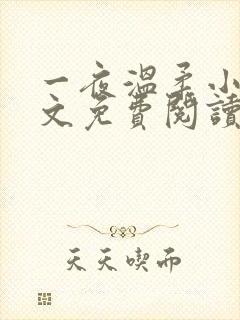 一夜温柔小
文免費閱讀
天天喫雨